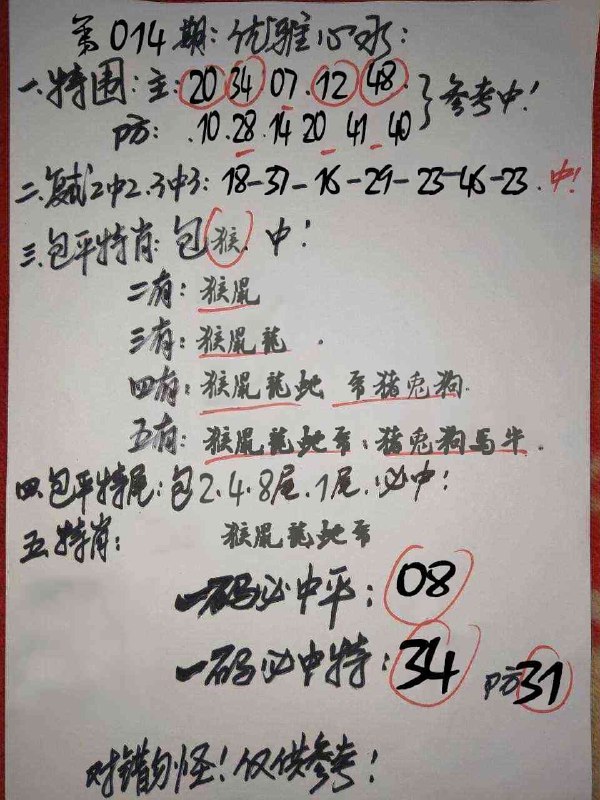 第014期:优雅心水:
一.特围:主:20 34 07.12 48.
P方: .10.28.14 20 41 40 }参考中!
二.复试2中2.3中3: 18-37-16-29-23-46-23.中!
三.包平特肖:包猴.中!
二有:猴鼠
三有:猴鼠龍.
四有:猴鼠龍蛇 猪兔狗.
五有:猴鼠龍蛇 猪兔狗馬牛.
四.包平特尾:包2.4.8尾.1尾.必中!
五.特肖: 猴鼠龍蛇
一码必中平:08
一码必中特:34 P方31
对错勿怪!仅供参考!